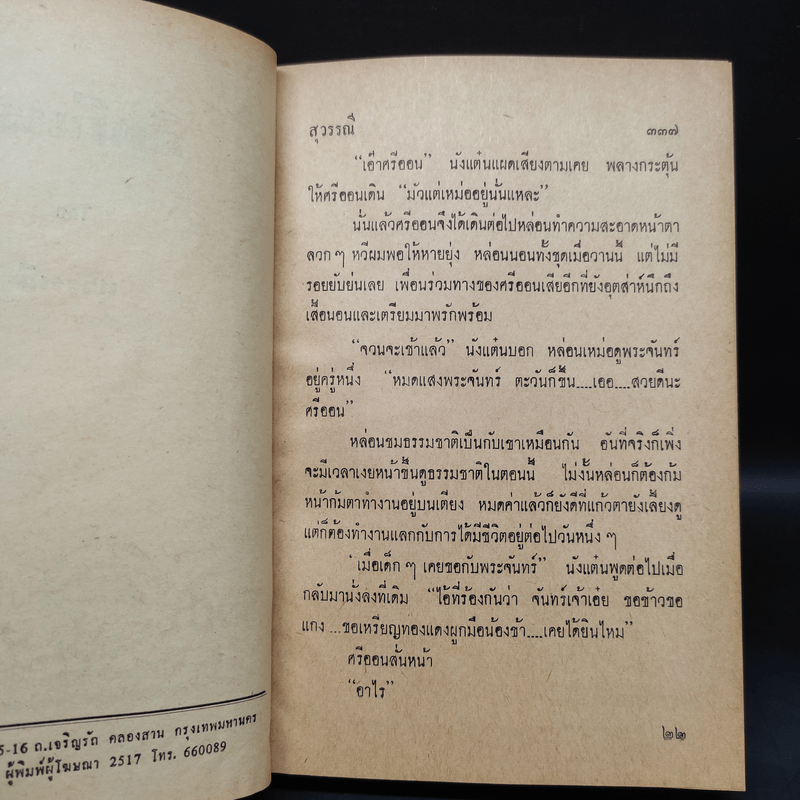 5-16 ถ.เจริญรัถ คลองสาน กรุงเทพมหานคร
ผู้พิมพ์ผู้โฆษณา 2517 โทร. 660089
สุวรรณี ๓๓๗
“เอ๊าศรีออน” นังแต๋นแผดเสียงตามเคย พลางกระตุ้น
ให้ศรีออนเดิน “มัวแต่เหม่ออยู่นั่นแหละ”
นั่นแล้วศรีออนจึงได้เดินต่อไปหล่อนทำความสะอาดหน้าตา
ลวก ๆ หวีผมพอให้หายยุ่ง หล่อนนอนทั้งชุดเมื่อวานนี้ แต่ไม่มี
รอยยับย่นเลย เพื่อนร่วมทางของศรีออนเสียอีกที่ยังอุตส่าห์นึกถึง
เสื้อนอนและเตรียมมาพรักพร้อม
“จวนจะเช้าแล้ว” นังแต๋นบอก หล่อนเหม่อดูพระจันทร์
อยู่ครู่หนึ่ง “หมดแสงพระจันทร์ ตะวันก็ขึ้น....เออ....สวยดีนะ
ศรีออน”
หล่อนชมธรรมชาติเป็นกับเขาเหมือนกัน อันที่จริงก็เพิ่ง
จะมีเวลาเงยหน้าขึ้นดูธรรมชาติในตอนนี้ ไม่งั้นหล่อนก็ต้องก้ม
หน้าก้มตาทำงานอยู่บนเตียง หมดค่าแล้วก็ยังดีที่แก้วตายังเลี้ยงดู
แต่ก็ต้องทำงานแลกกับการได้มีชีวิตอยู่ต่อไปวันหนึ่ง ๆ
‘เมื่อเด็ก ๆ เคยขอกับพระจันทร์” นังแต๋นพูดต่อไปเมื่อ
กลับมานั่งลงที่เดิม “ไอ้ที่ร้องกันว่า จันทร์เจ้าเอ๋ย ขอข้าวขอ
แกง ...ขอเหรียญทองแดงผูกมือน้องข้า....เคยได้ยินไหม”
ศรีออนสั่นหน้า
“อาไร”
๒๒